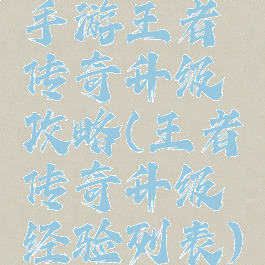 手游王者
传奇升级
攻略(王者
传奇升级
经验列表)